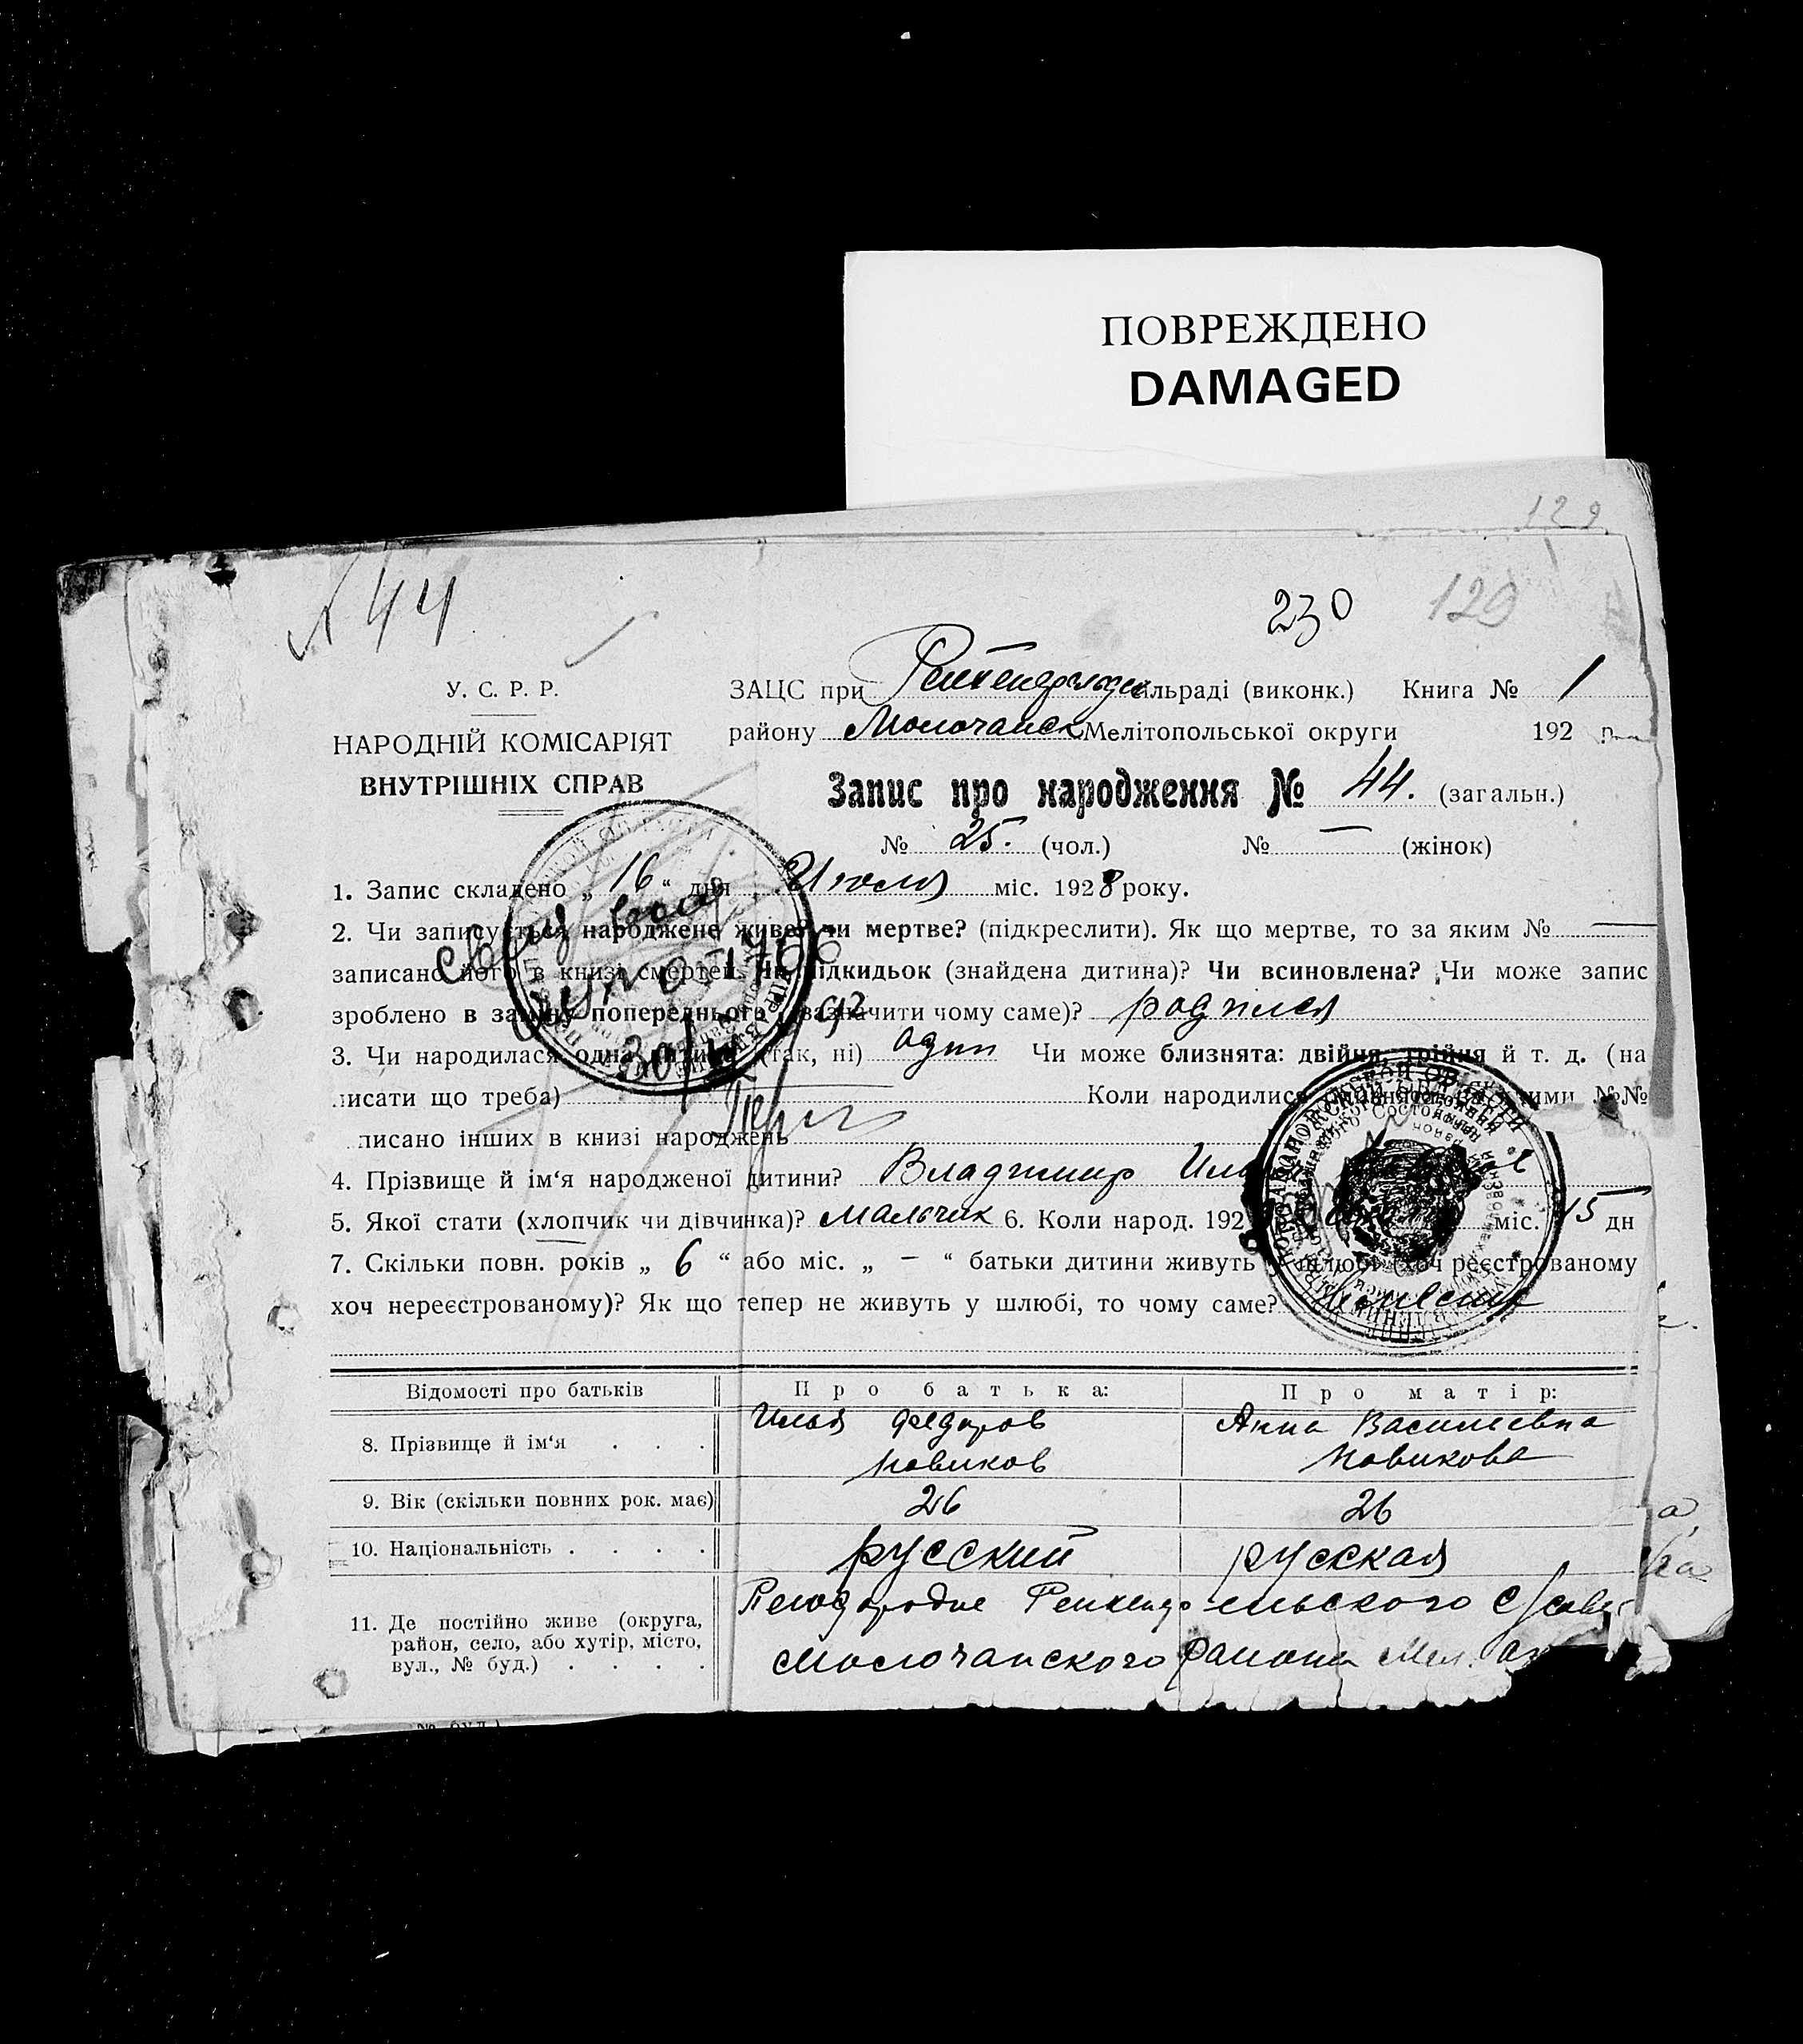 ПОВРЕЖДЕНО
DAMAGED
129
№ 44
230
129
У. С. Р. Р.
НАРОДНІЙ КОМІСАРІЯТ
ВНУТРІШНІХ СПРАВ
ЗАЦС при сільраді (виконк.) Книга № 1
району Молочанск Мелітопольської округи 192 р.
Запис про народження № 44. (загальн.)
№ 25. (чол.) № — (жінок)
1. Запис складено „ 16 “ дня Июля міс. 1928 року.
2. Чи записується народжене живе? чи мертве? (підкреслити). Як що мертве, то за яким № —
записано його в книзі смертей. Чи підкидьок (знайдена дитина)? Чи всиновлена? Чи може запис
зроблено в заміну попереднього (зазначити чому саме)? родился
3. Чи народилася одна дитина (так, ні) один Чи може близнята: двійня, трійня й т. д. (на
писати що треба) Коли народилися №№
писано інших в книзі народжень
4. Прізвище й ім'я народженої дитини? Владимир
5. Якої стати (хлопчик чи дівчинка)? мальчик 6. Коли народ. 192 міс. 15 дн
7. Скільки повн. років „ 6 “ або міс. „ — “ батьки дитини живуть у шлюбі (хоч реєстрованому
хоч нереєстрованому)? Як що тепер не живуть у шлюбі, то чому саме?
Відомості про батьків Про батька: Про матір:
8. Прізвище й ім'я . . . Илья Федоров Новиков Анна Васильевна Новикова
9. Вік (скільки повних рок. має) 26 26
10. Національність . . . . русский русская
11. Де постійно живе (округа, район, село, або хутір, місто, вул., № буд.) . . . .
Молочанского района Мел.
№ буд.)